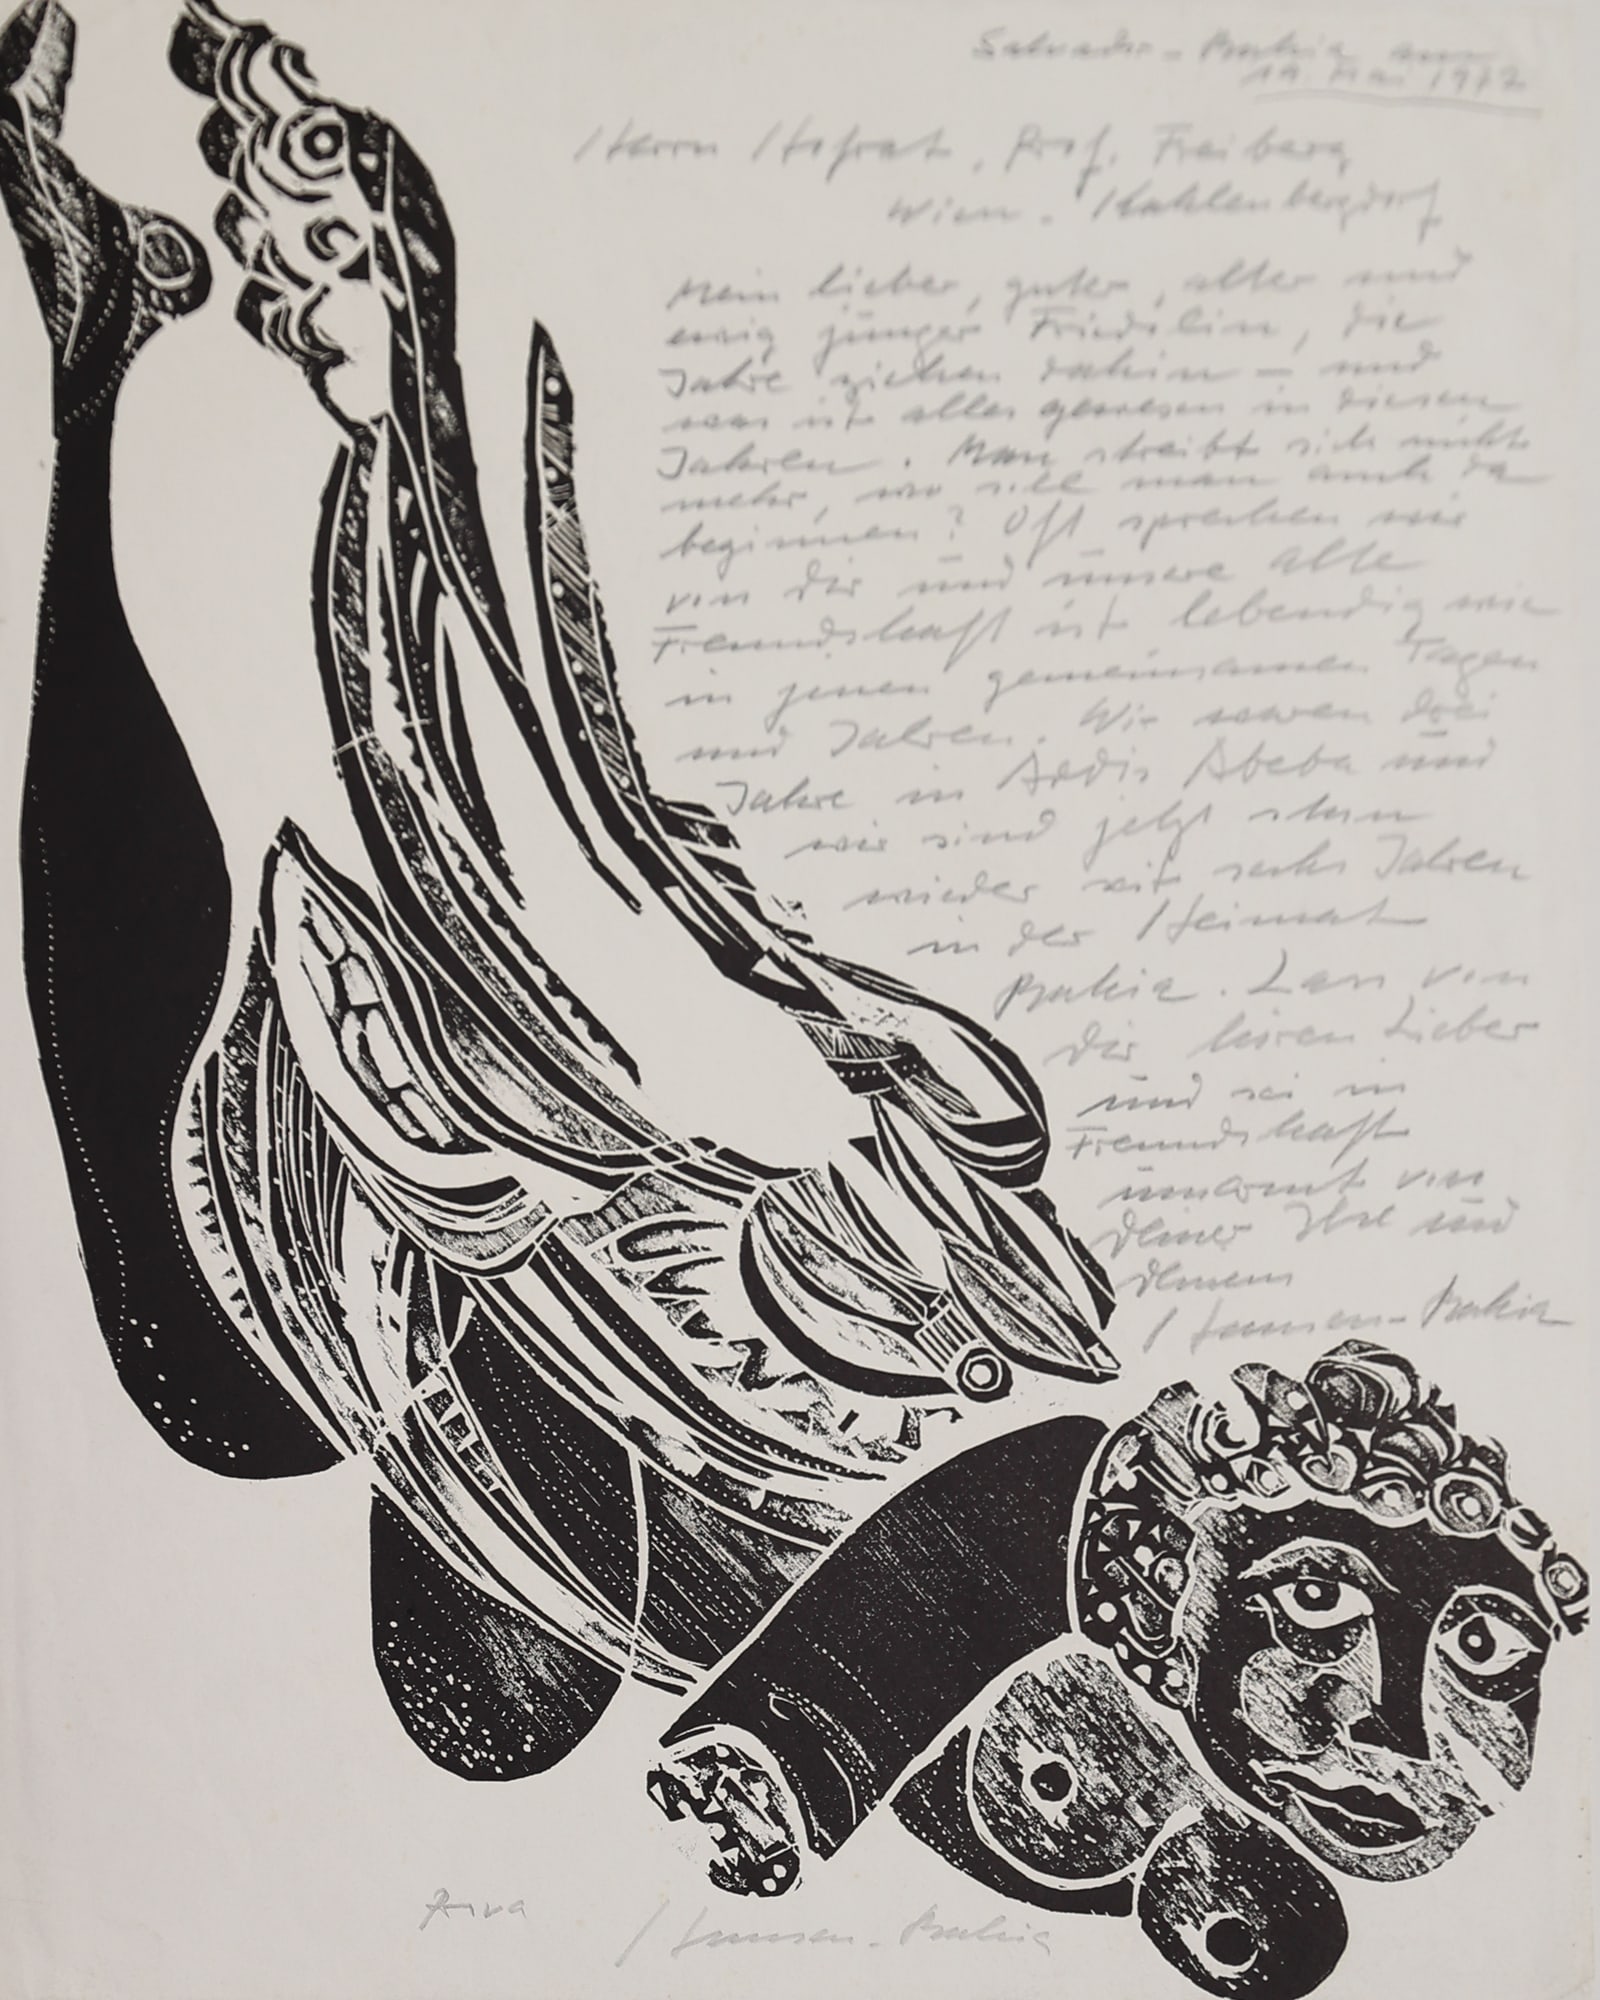 Salvador - Bahia am
19. Mai 1972
Herrn Hofrat, Prof. Freiberg
Wien - Kahlenbergdorf
Mein lieber, guter, alter und
ewig junger Friedolin, die
Jahre ziehen dahin - und
was ist alles gewesen in diesen
Jahren. Man schreibt sich nicht
mehr, wo soll man auch da
beginnen? Oft sprechen wir
von dir und unsere alte
Freundschaft ist lebendig wie
in jenen gemeinsamen Tagen
und Jahren. Wir waren drei
Jahre in Addis Abeba und
wir sind jetzt schon
wieder seit sechs Jahren
in der Heimat
Bahia. Lass von
dir hören Lieber
und sei in
Freundschaft
umarmt von
deiner Ilse und
deinem
Hansen-Bahia
Hansen-Bahia